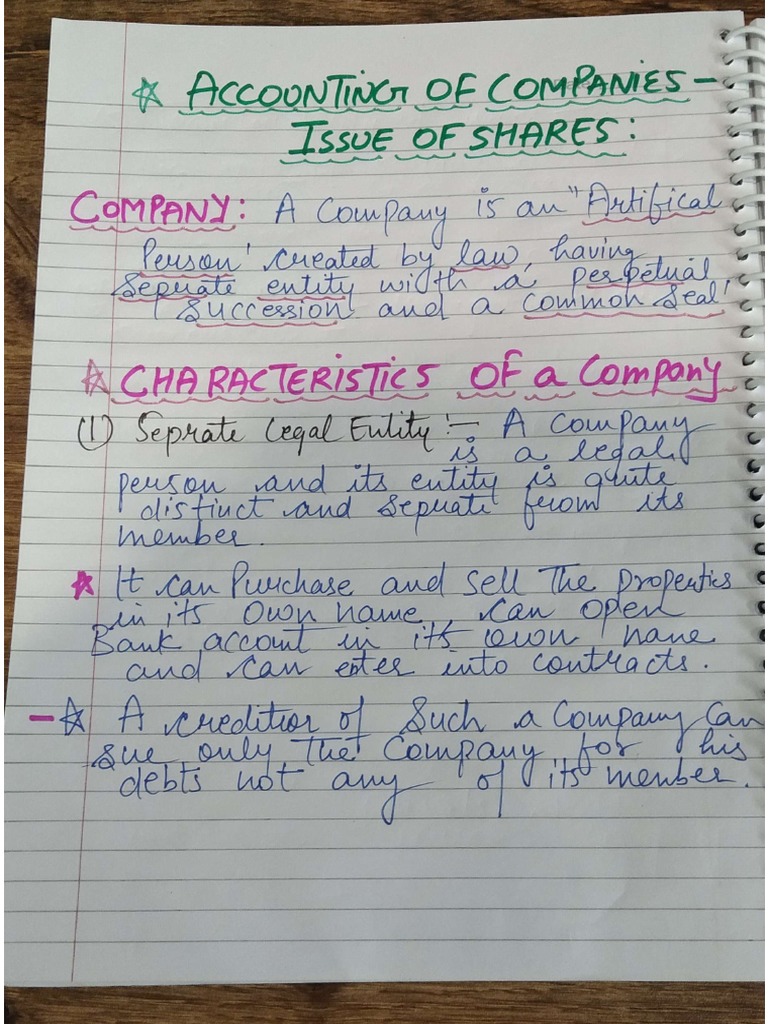 ☆ ACCOUNTING OF COMPANIES -
ISSUE OF SHARES:
COMPANY: A Company is an "Artifical
Person' created by law, having
Seprate entity with a perpetual
succession and a common seal'
☆ CHARACTERISTICS OF a Company
(1) Seprate Legal Entity :- A company
is a legal
person and its entity is quite
distinct and seprate from its
member.
☆ It can Purchase and sell The properties
in its own name, can open
Bank account in its own name
and can enter into contracts.
- ☆ A creditior of Such a Company Can
sue only The Company for his
debts not any of its member.